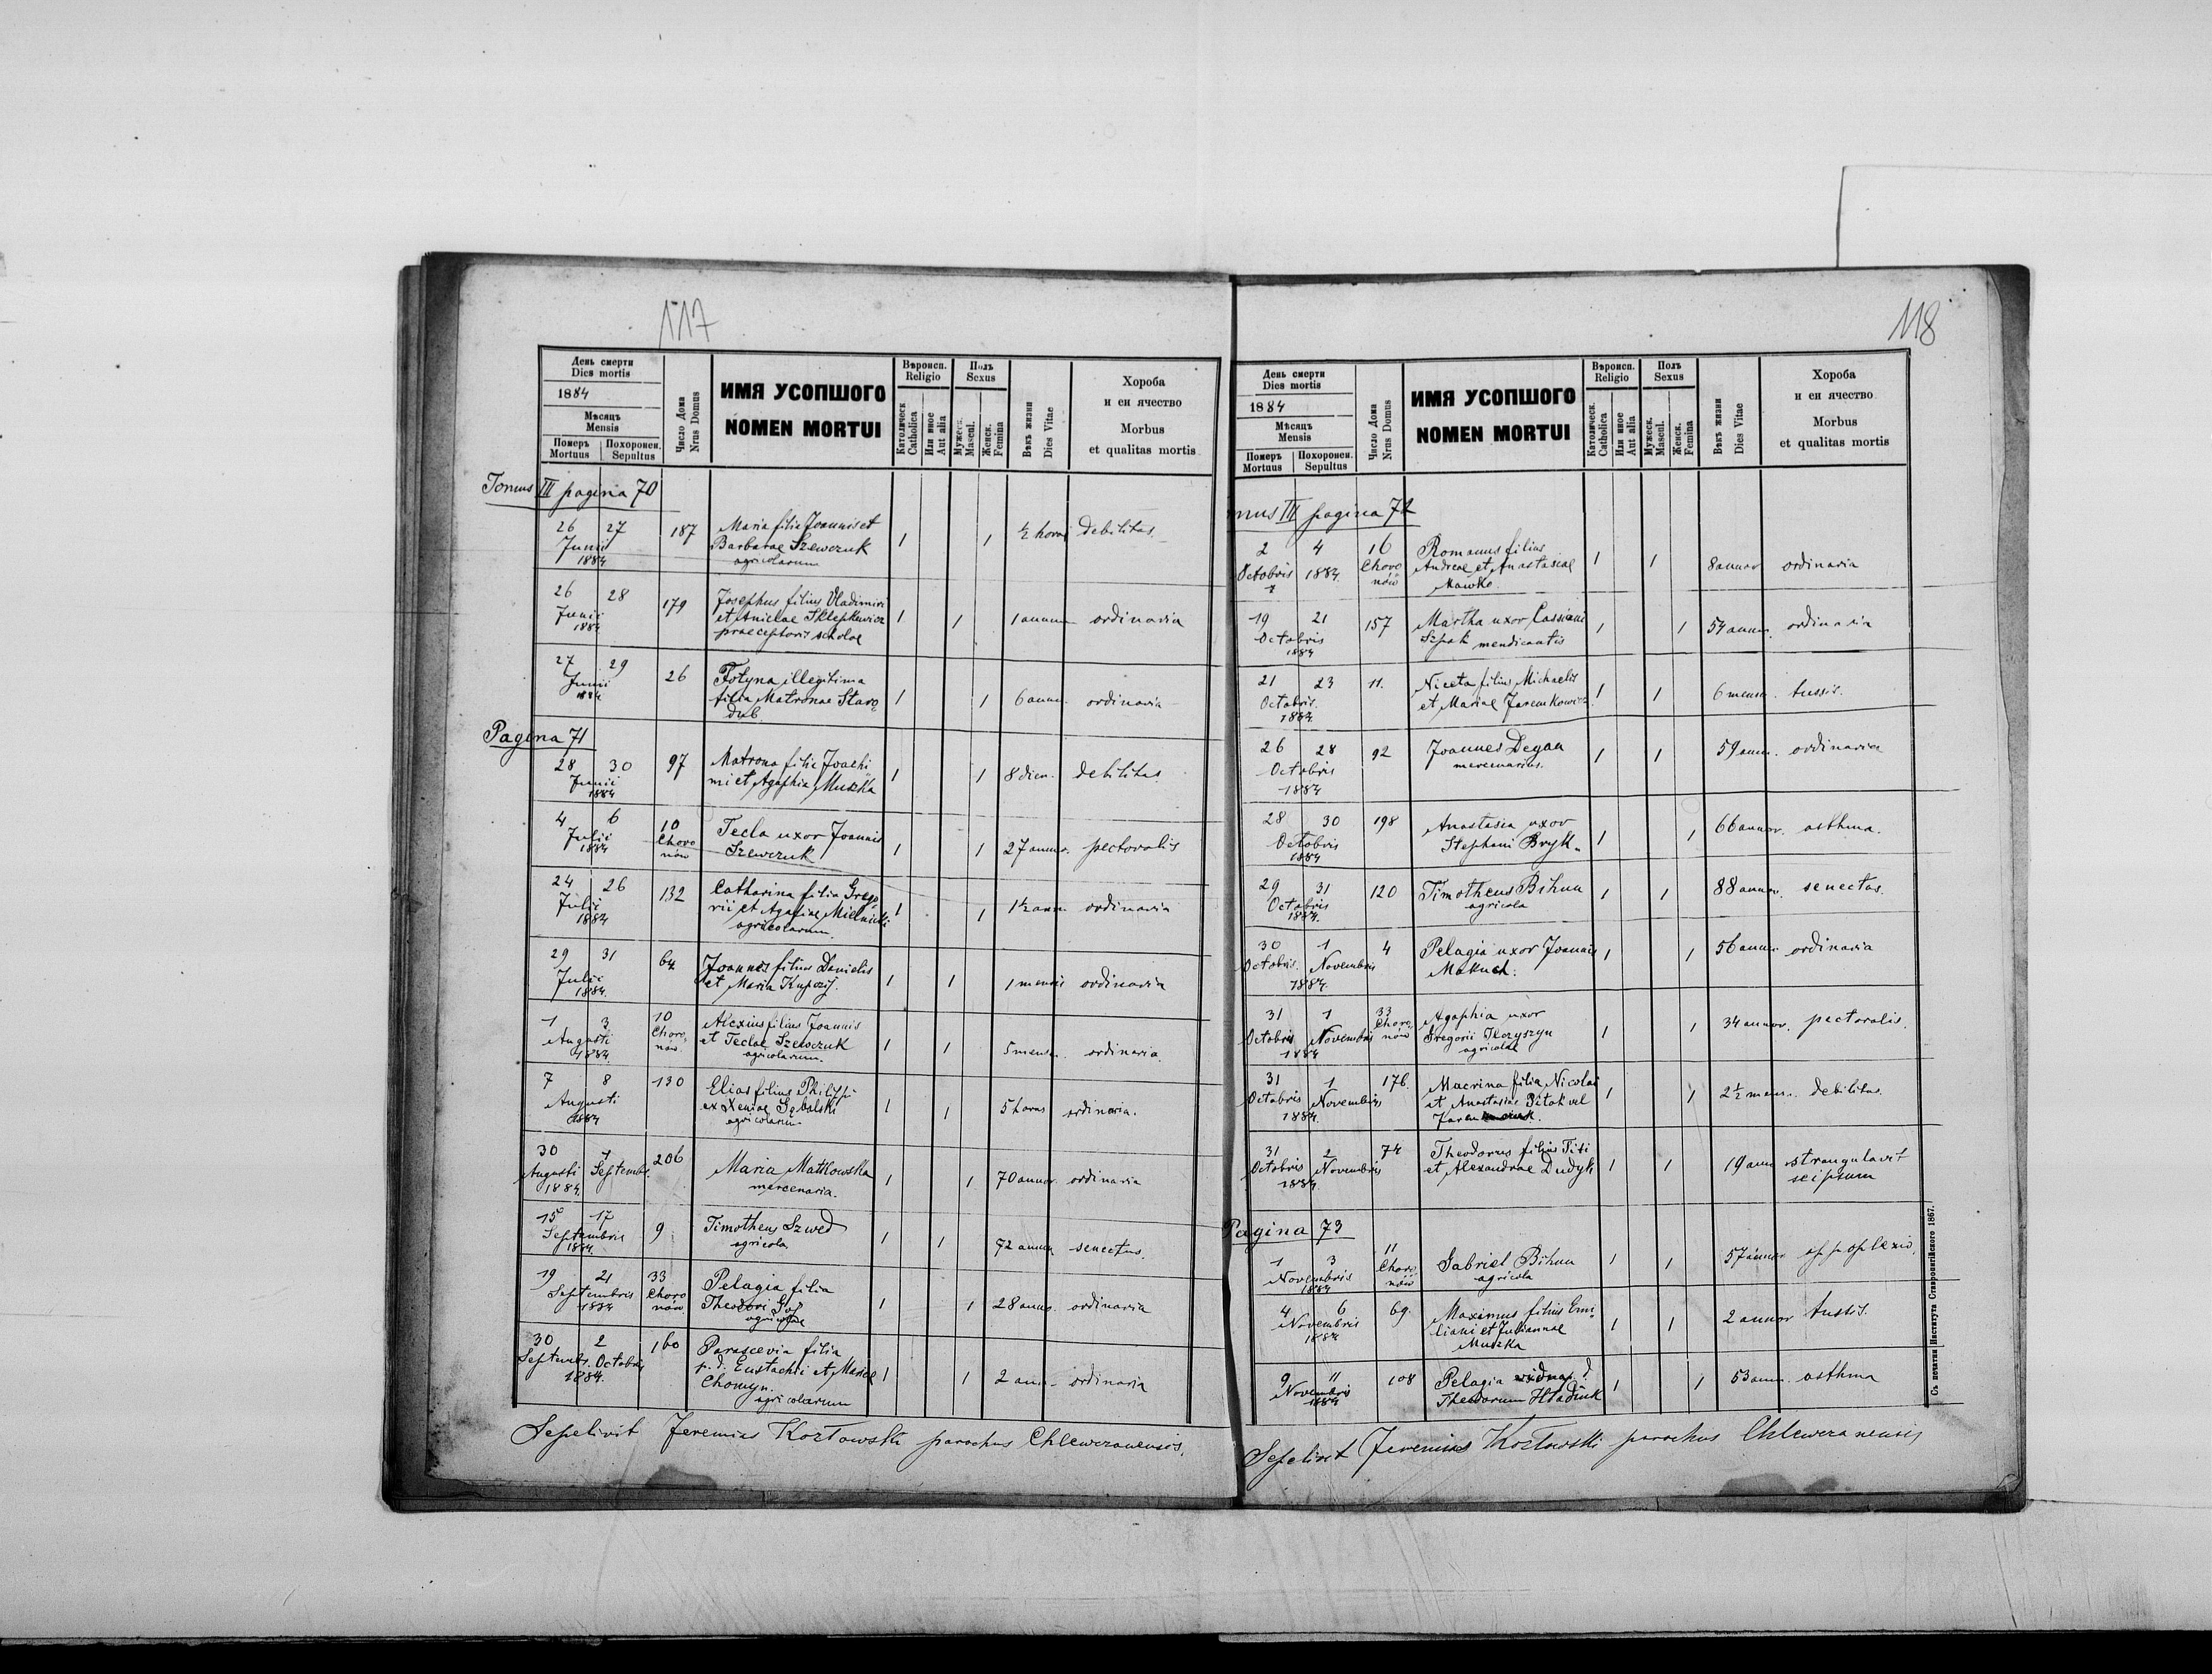 117
День смерти
Dies mortis
1884
Мѣсяцъ
Mensis
Померъ
Mortuus
Похоронен.
Sepultus
Число Дома
Nrus Domus
ИМЯ УСОПШОГО
NOMEN MORTUI
Вѣроисп.
Religio
Католическ
Catholica
Или иное
Aut alia
Полъ
Sexus
Мужеск.
Mascul.
Женск.
Femina
Вѣкъ жизни
Dies Vitae
Хороба
и еи ячество
Morbus
et qualitas mortis
Tomus III pagina 70
26 27 187 Maria filia Joannis et 1 1 ½ horae debilitas
Junii Barbarae Szewczuk
1884 agricolarum
26 28 179 Josephus filius Vladimiri 1 1 1 annum ordinaria
Junii et Anielae Sklepkiewicz
1884 praeceptoris scholae
27 29 26 Fotyna illegitima 1 1 6 annor. ordinaria
Junii filia Matronae Staro
1884 dub
Pagina 71
28 30 97 Matrona filia Joachi 1 1 8 dier. debilitas
Junii mi et Agaphia Muszka
1884
4 6 10 Tecla uxor Joannis 1 1 27 annor. pectoralis
Julii Choro Szewczuk
1884 nów
24 26 132 Catharina filia Grego 1 1 1½ ann. ordinaria
Julii rii et Agafiae Mielnicki
1884 agricolarum
29 31 64 Joannes filius Danielis 1 1 1 mensis ordinaria
Julii et Maria Kupczij.
1884.
1 3 10 Alexius filius Joannis 1 1 5 mens. ordinaria.
Augusti Choro et Teclae Szewczuk
1884. nów agricolarum
7 8 130 Elias filius Philippi 1 1 5 horas ordinaria.
Augusti ex Xeniae Sębalski
1884 agricolarum
30 1 206 Maria Matkowska 1 1 70 annor. ordinaria
Augusti Septembr. mercenaria.
1884
15 17 9 Timotheus Szwed 1 1 72 annor senectus.
Septembris agricola
1884.
19 21 33 Pelagia filia 1 1 28 annor. ordinaria
Septembris Choro Theodori
1884 nów. agricolae
30 2 160 Parascevia filia 1 1 2 ann. ordinaria
Septembr. Octobris p. d. Eustachii et Mariae
1884. Chomyn
agricolarum
Sepelivit Jeremias Kozłowski parochus Chlewczanensis.
118
День смерти
Dies mortis
1884
Мѣсяцъ
Mensis
Померъ
Mortuus
Похоронен.
Sepultus
Число Дома
Nrus Domus
ИМЯ УСОПШОГО
NOMEN MORTUI
Вѣроисп.
Religio
Католическ.
Catholica
Или иное
Aut alia
Полъ
Sexus
Мужеск.
Mascul.
Женск.
Femina
Вѣкъ жизни
Dies Vitae
Хороба
и еи ячество
Morbus
et qualitas mortis
mus III pagina 72
2 4 16 Romanus filius 1 1 8 annor ordinaria
Octobris 1884 Choro Andreae et Anastasiae
nów Mawko
19 21 157 Martha uxor Cassiani 1 1 54 annor. ordinaria
Octobris Szpak mendicantis
1884
21 23 11. Niceta filius Michaelis 1 1 6 mens. tussis.
Octobris. et Mariae
1884
26 28 92 Joannes Degan 1 1 59 annor. ordinaria
Octobris mercenarius.
1884
28 30 198 Anastasia uxor 1 1 66 annor. asthma.
Octobris Stephani Bryk
1884
29 31 120 Timotheus Bihun 1 1 88 annor. senectus.
Octobris agricola
1884.
30 1 4 Pelagia uxor Joannis 1 1 56 annor ordinaria
Octobris. Novembris Makuch.
1884
31 1 33 Agaphia uxor 1 1 34 annor. pectoralis.
Octobris Novembris Choro Gregorii Ilczyszyn
1884 nów agricolae
31 1 176. Macrina filia Nicolai 1 1 2½ mens. debilitas.
Octobris Novembris et Anastasiae Pitak vel
1884.
31 2 74 Theodorus filius Titi 1 1 19 ann strangulavit
Octobris Novembris et Alexandrae Dudyk seipsum
1884
Pagina 73
1 3 11 Gabriel Bihun 1 1 57 annor apoplexio.
Novembris Choro agricola
1884 nów
4 6 69. Maximus filius Emi 1 1 2 annor tussis.
Novembris liani et Juliannae
1884 Muszka
9 11 108 Pelagia vidua p. 1 1 53 ann. asthma
Novembris Theodorum Hładiuk
1884
Sepelivit Jeremias Kozłowski parochus Chlewczanensis
Съ печатни Института Ставропигійского 1867.